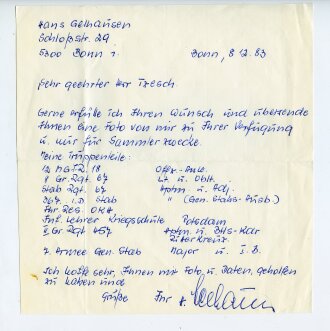 Hans Gelhausen
Schloßstr. 29
5300 Bonn 1
Bonn, 8.12.83
Sehr geehrter Herr Tresch.
Gerne erfülle ich Ihren Wunsch und übersende
Ihnen eine Foto von mir zu Ihrer Verfügung
u. nur für Sammlerzwecke.
Meine Truppenteile:
Offz.-Anw.
Gr. Rgt. 67 Lt. u. Oblt.
Stab Rgt. 67 Hptm. u. Adj.
367. I.D Stab " (Gen. Stabs-Ausb.)
Fhr. Res. OKH
Inf. Lehrer Kriegsschule Potsdam
Gr. Rgt 457 Hptm. u. Btls-Kdr
Ritterkreuz.
7. Armee Gen. Stab Major u. i. G.
Ich hoffe sehr, Ihnen mit Foto u. Daten geholfen
zu haben und
Grüße Ihr